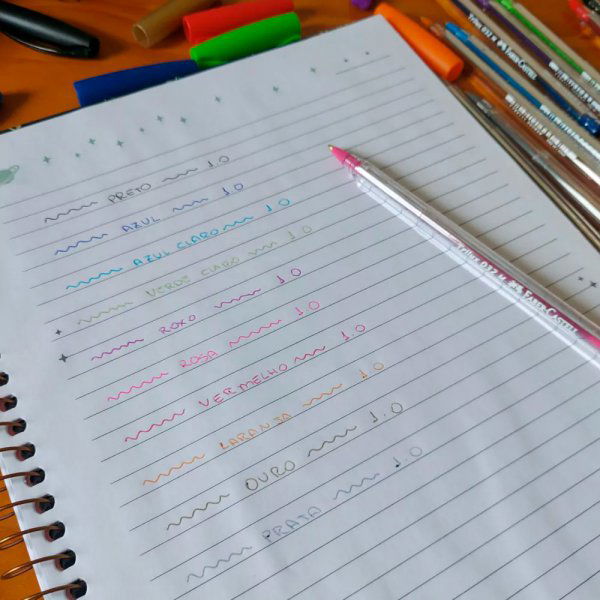 PRETO 1.0
AZUL 1.0
AZUL CLARO 1.0
VERDE CLARO 1.0
ROXO 1.0
ROSA 1.0
VERMELHO 1.0
LARANJA 1.0
OURO 1.0
PRATA 1.0
Trilux 032 M FABER-CASTELL
Trilux 032 M FABER-CASTELL